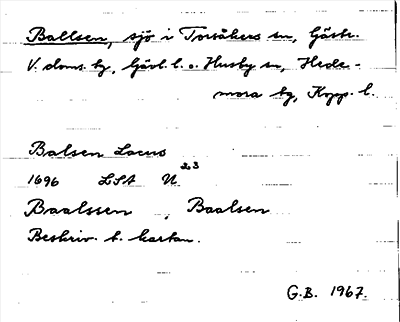 Ballsen, sjö i Torsåkers sn, Gästr.
V. doms. bg, Gävl. l. o. Husby sn, Hede-
mora bg, Kopp. l.
Balsen Lacus
1696 LSA U 23
Baalssen, Baalsen
Beskriv. t. kartan.
G.B. 1967.